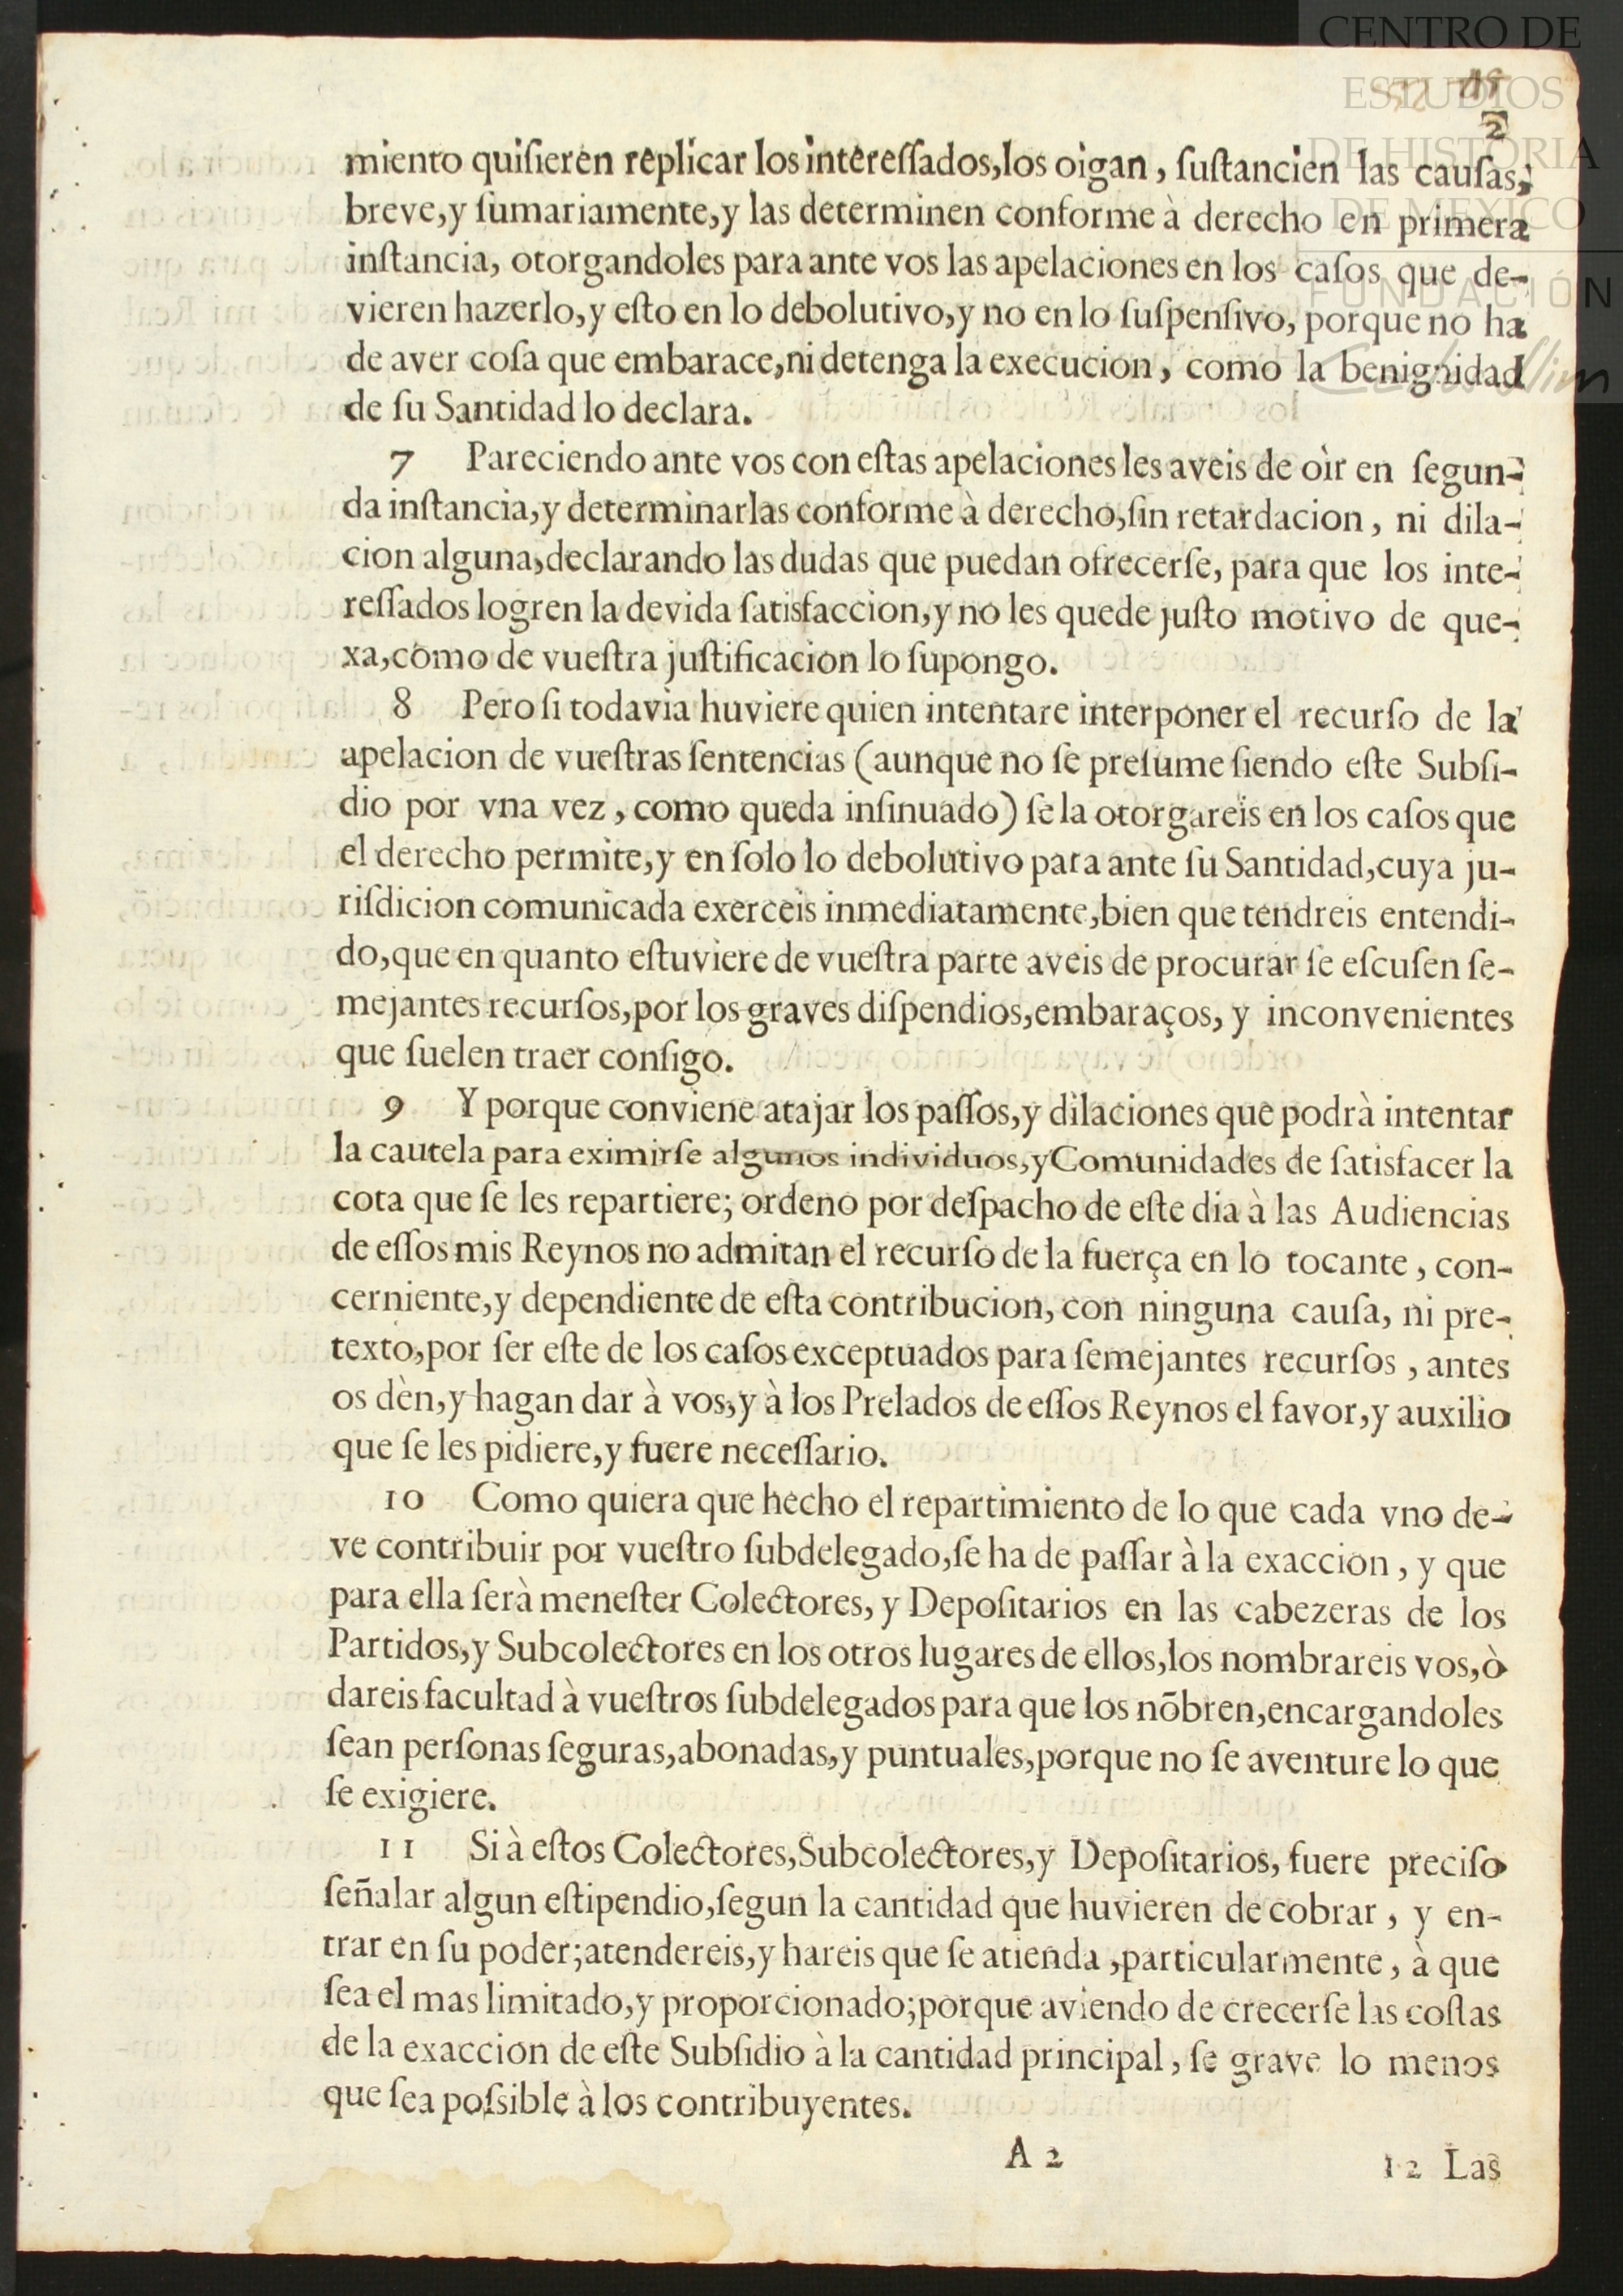 CENTRO DE
ESTUDIOS
DE HISTORIA
DE MEXICO
FUNDACIÓN
2
miento quiſieren replicar los intereſſados,los oigan , ſuſtancien las cauſas,
breve,y ſumariamente,y las determinen conforme à derecho en primera
inſtancia, otorgandoles para ante vos las apelaciones en los caſos que de-
vieren hazerlo,y eſto en lo debolutivo,y no en lo ſuſpenſivo, porque no ha
de aver coſa que embarace,ni detenga la execucion, como la benignidad
de ſu Santidad lo declara.
7 Pareciendo ante vos con eſtas apelaciones les aveis de oìr en ſegun-
da inſtancia,y determinarlas conforme à derecho,ſin retardacion , ni dila-
cion alguna,declarando las dudas que puedan ofrecerſe, para que los inte-
reſſados logren la devida ſatisfaccion,y no les quede juſto motivo de que-
xa,como de vueſtra juſtificacion lo ſupongo.
8 Pero ſi todavia huviere quien intentare interponer el recurſo de la
apelacion de vueſtras ſentencias (aunque no ſe preſume ſiendo eſte Subſi-
dio por vna vez , como queda inſinuado) ſe la otorgareis en los caſos que
el derecho permite,y en ſolo lo debolutivo para ante ſu Santidad,cuya ju-
riſdicion comunicada exerceis inmediatamente,bien que tendreis entendi-
do,que en quanto eſtuviere de vueſtra parte aveis de procurar ſe eſcuſen ſe-
mejantes recurſos,por los graves diſpendios,embaraços, y inconvenientes
que ſuelen traer conſigo.
9 Y porque conviene atajar los paſſos,y dilaciones que podrà intentar
la cautela para eximirſe algunos individuos,y Comunidades de ſatisfacer la
cota que ſe les repartiere; ordeno por deſpacho de eſte dia à las Audiencias
de eſſos mis Reynos no admitan el recurſo de la fuerça en lo tocante , con-
cerniente,y dependiente de eſta contribucion, con ninguna cauſa, ni pre-
texto,por ſer eſte de los caſos exceptuados para ſemejantes recurſos , antes
os dèn,y hagan dar à vos,y à los Prelados de eſſos Reynos el favor,y auxilio
que ſe les pidiere,y fuere neceſſario.
10 Como quiera que hecho el repartimiento de lo que cada vno de-
ve contribuir por vueſtro ſubdelegado,ſe ha de paſſar à la exaccion , y que
para ella ſerà meneſter Colectores, y Depoſitarios en las cabezeras de los
Partidos,y Subcolectores en los otros lugares de ellos,los nombrareis vos,ò
dareis facultad à vueſtros ſubdelegados para que los nõbren,encargandoles
ſean perſonas ſeguras,abonadas,y puntuales,porque no ſe aventure lo que
ſe exigiere.
11 Si à eſtos Colectores,Subcolectores,y Depoſitarios, fuere preciſo
ſeñalar algun eſtipendio,ſegun la cantidad que huvieren de cobrar , y en-
trar en ſu poder;atendereis,y hareis que ſe atienda ,particularmente , à que
ſea el mas limitado,y proporcionado;porque aviendo de crecerſe las coſtas
de la exaccion de eſte Subſidio à la cantidad principal , ſe grave lo menos
que ſea poſsible à los contribuyentes.
A 2
12 Las